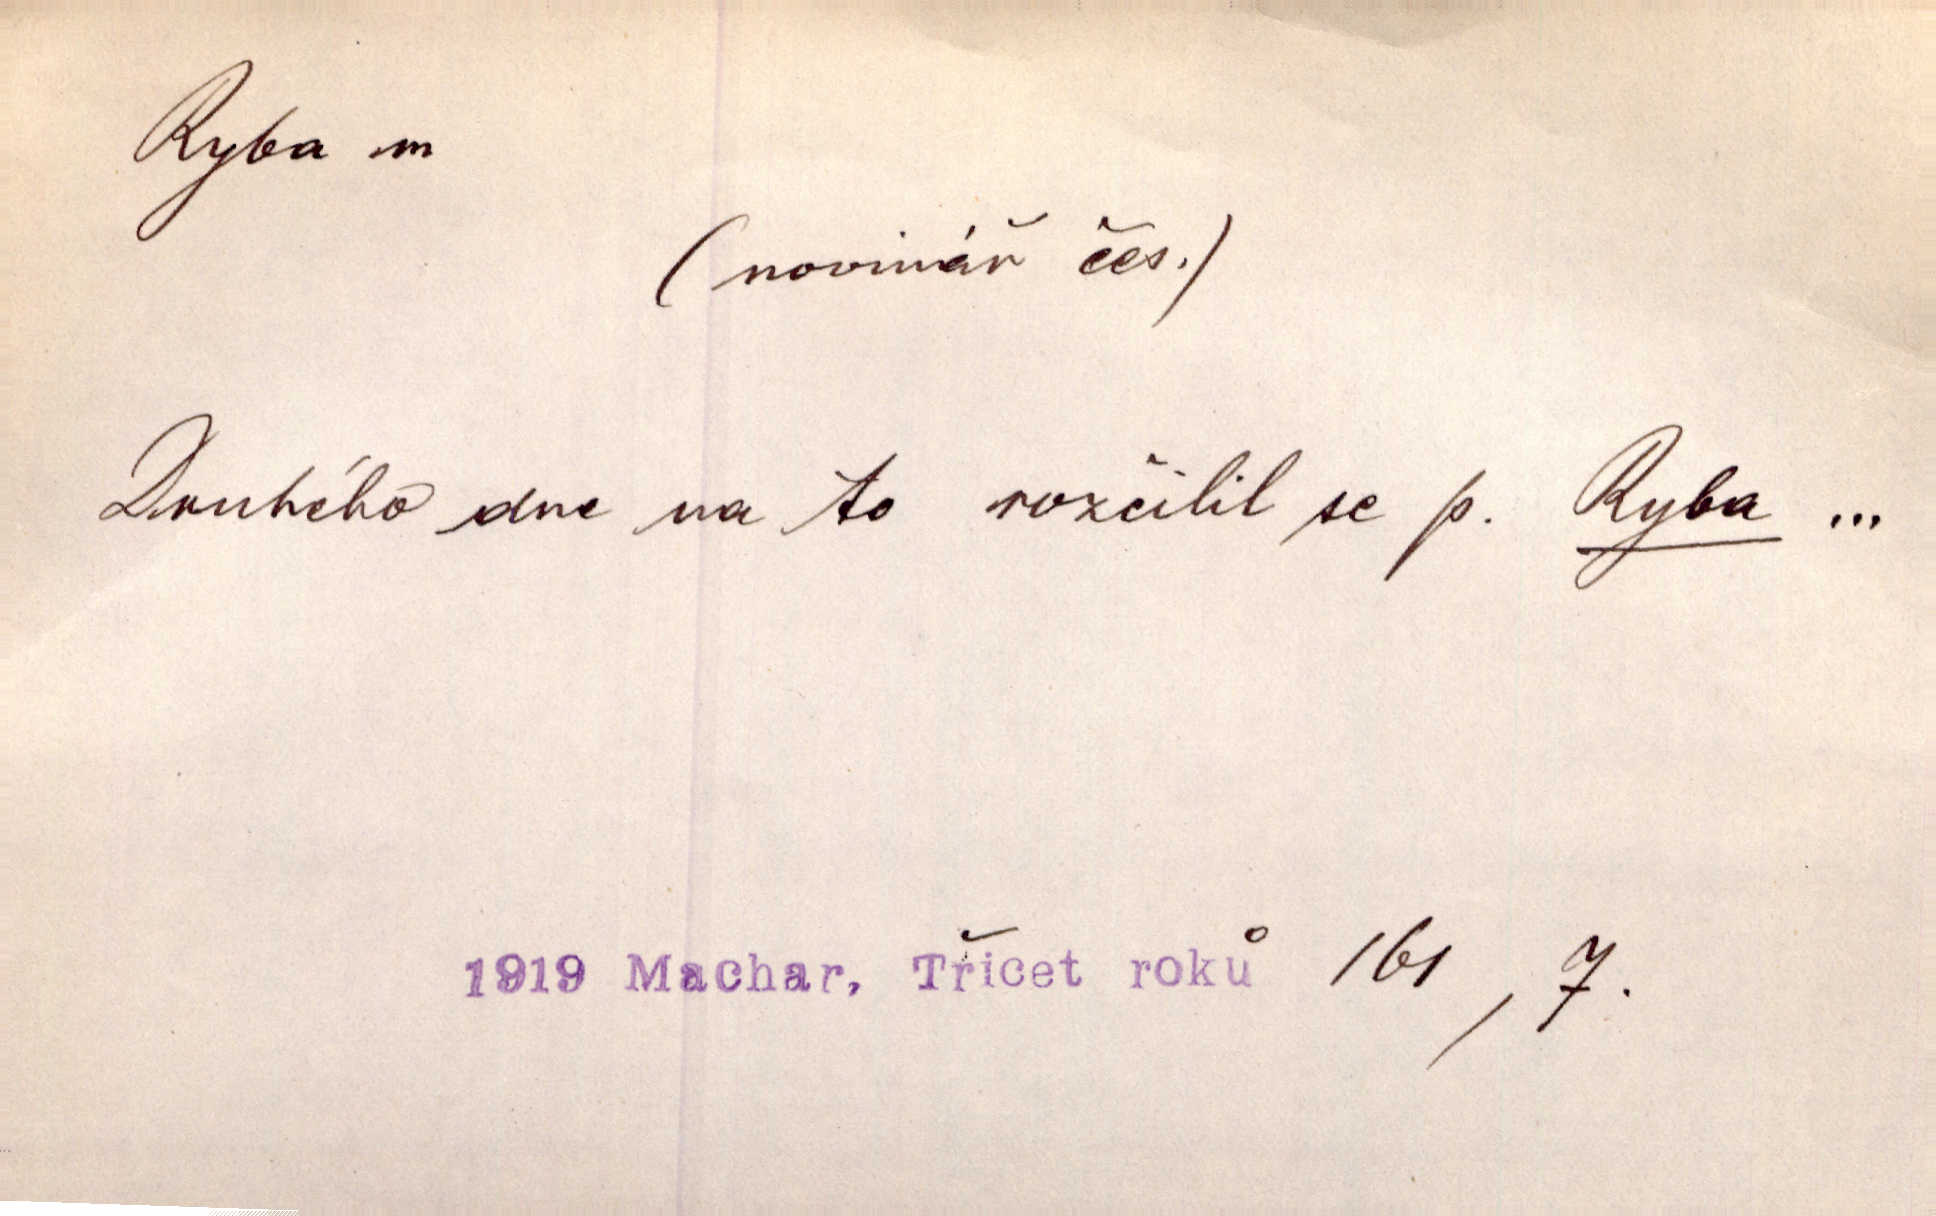 Ryba m
(novinář čes.)
Druhého dne na to rozčilil se p. Ryba ...
1919 Machar, Třicet roků 161, 7.